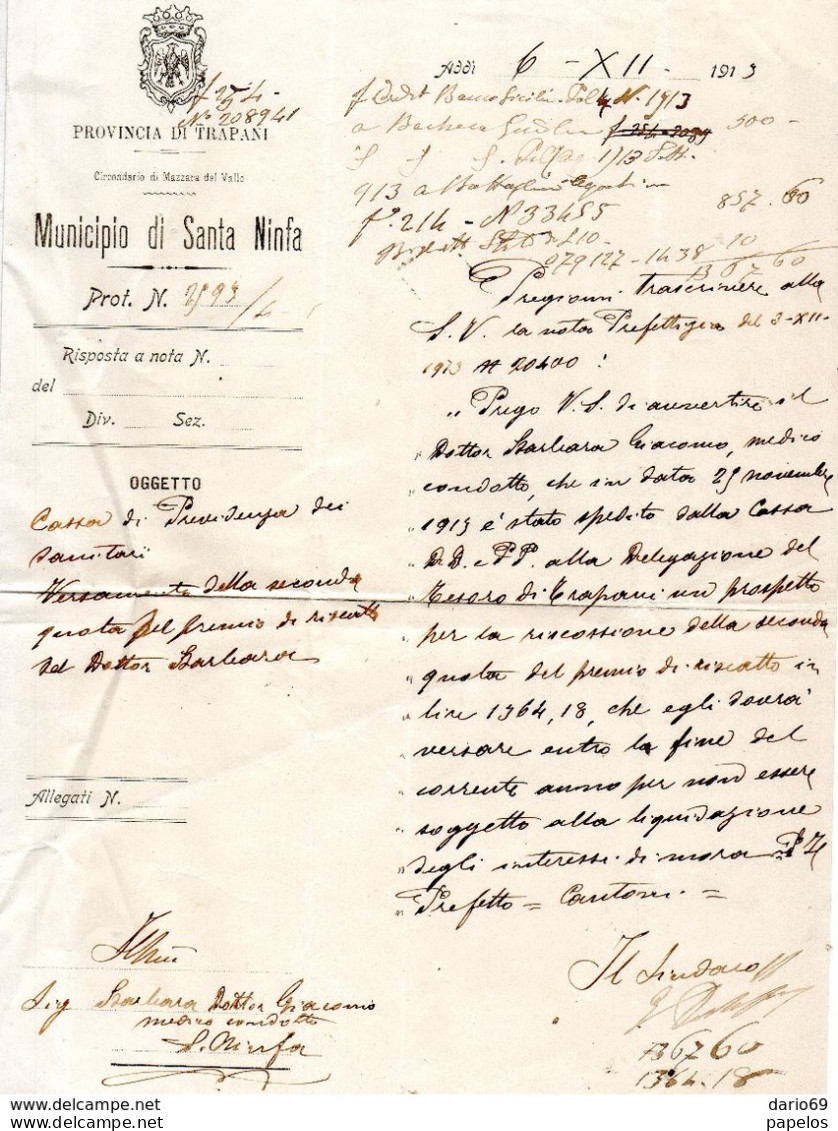 f 254-
N° 208941
PROVINCIA DI TRAPANI
Circondario di Mazzara del Vallo
Municipio di Santa Ninfa
Prot. N. 2593/4
Risposta a nota N.
del
Div. Sez.
OGGETTO
Cassa di Previdenza dei
sanitari
Versamento della seconda
quota pel premio di riscatto
del Dottor Barbara
Allegati N.
Sig Barbara Dottor Giacomo
medico condotto
S. Ninfa
Addì 6 - XII - 1913
1913
a 500-
913 a
857.60
f° 214 - N° 33455
279127 - 1438 10
1367 60
Pregiomi trascrivere alla
S. V. la nota Prefettizia del 3-XII-
1913 N 20400:
" Prego V. S. di avvertire il
" Dottor Barbara Giacomo, medico
" condotto, che in data 25 novembre
1913 è stato spedito dalla Cassa
DD. e PP. alla Delegazione del
" Tesoro di Trapani un prospetto
" per la riscossione della seconda
" quota del premio di riscatto in
" lire 1364,18, che egli dovrà
" versare entro la fine del
" corrente anno per non essere
" soggetto alla liquidazione
" degli interessi di mora. = Il
" Prefetto = Cantoni. =
Il Sindaco
1367 60
1364.18
dario69
papelos